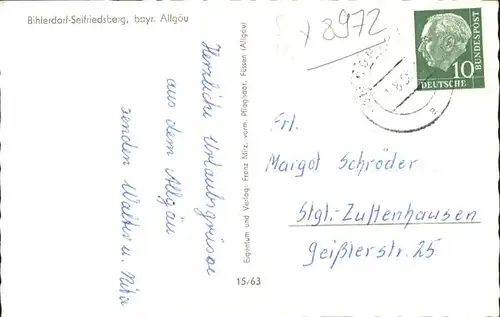 Bihlerdorf-Seifriedsberg, bayr. Allgäu
x 8972
10
DEUTSCHE
BUNDESPOST
Herzliche Urlaubsgrüsse
aus dem Allgäu
senden Walter u. Rita
Eigentum und Verlag: Franz Milz, vorm. Pfleghaar, Füssen (Allgäu)
15/63
Frl.
Margot Schröder
Stgt.-Zuffenhausen
Geißlerstr. 25